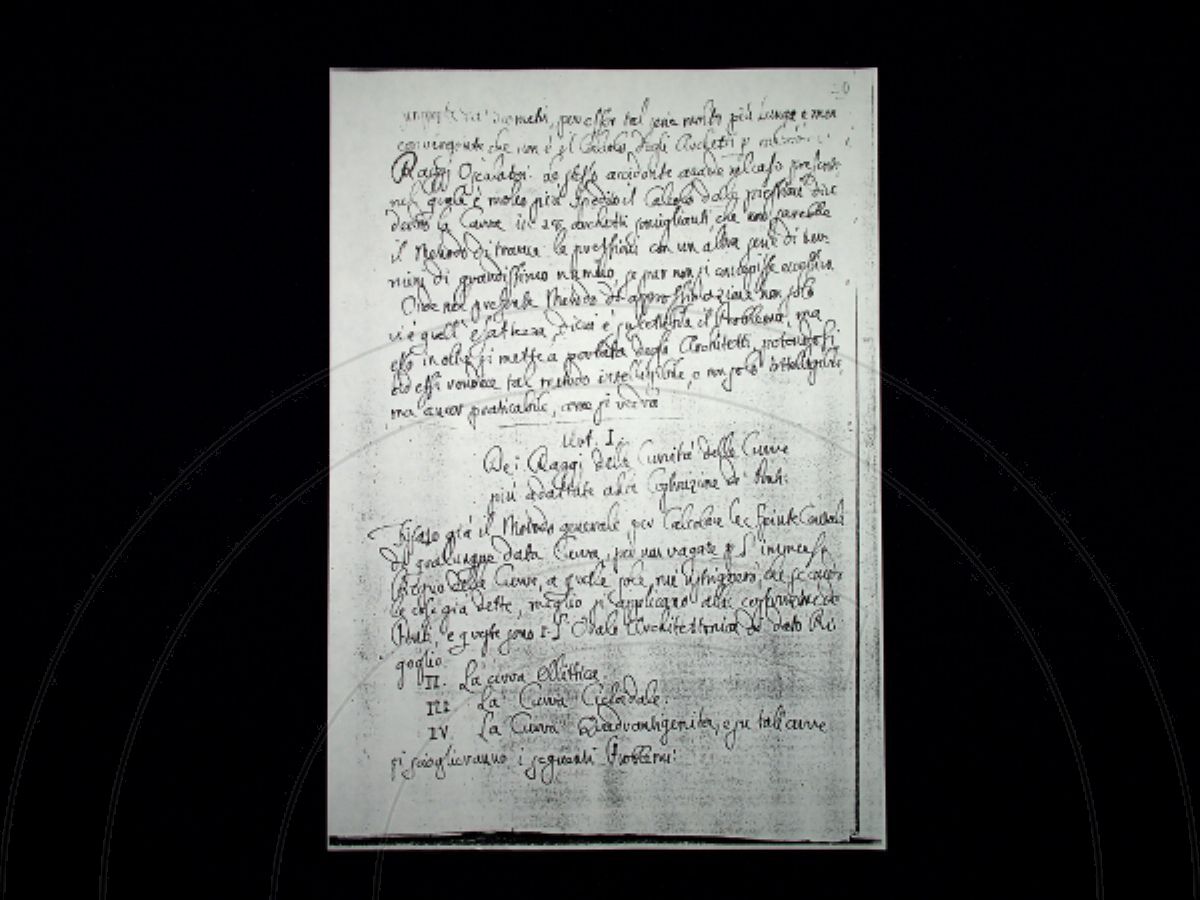 metri, per esser tal serie molto più lunga e men
che non è il Calcolo degli Archetti p
Raggj Osculatori: lo stesso accidente accade nel caso presente
nel quale è molto più spedito il Calcolo delle pressioni
la Curva in archetti somiglianti che non sarebbe
il Metodo di trovar le pressioni con un altra serie di ter-
mini di grandissimo numero, se pur non si
Onde nel presente Metodo di approssimazione non solo
vi è quell' esattezza, di cui è suscettibile il Problema, ma
esso inoltre si mette a portata degli Architetti, potendosi
ad essi rendere tal metodo intelligibile, e non solo intelligibile,
ma ancor praticabile, come si vedrà
Art. I.
Dei Raggi delle Curvità delle Curve
più adattate alla Costruzione de' Ponti
già il Metodo generale per Calcolare le Spinte
di qualunque data Curva, per non vagare p l' immenso
Regno delle Curve, a quelle sole mi ristringerò, che secondo
le cose già dette, meglio si applicano alla costruzione de
Ponti, e queste sono I. L' Ovale Architettonica di dato Ri-
goglio.
II. La curva Ellittica.
III. La Curva Cicloidale.
IV. La Curva e su tali curve
si scioglieranno i seguenti Problemi: